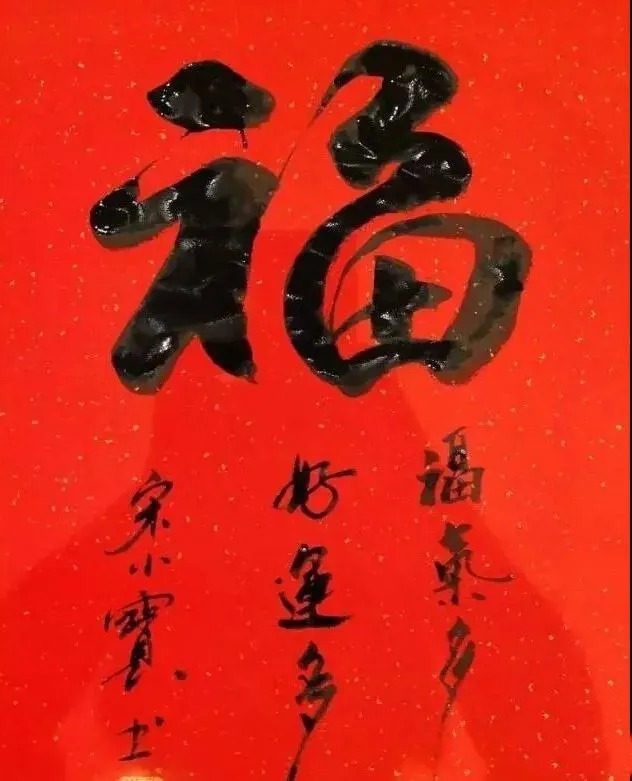 福
福氣多
好運多
宋小寶书